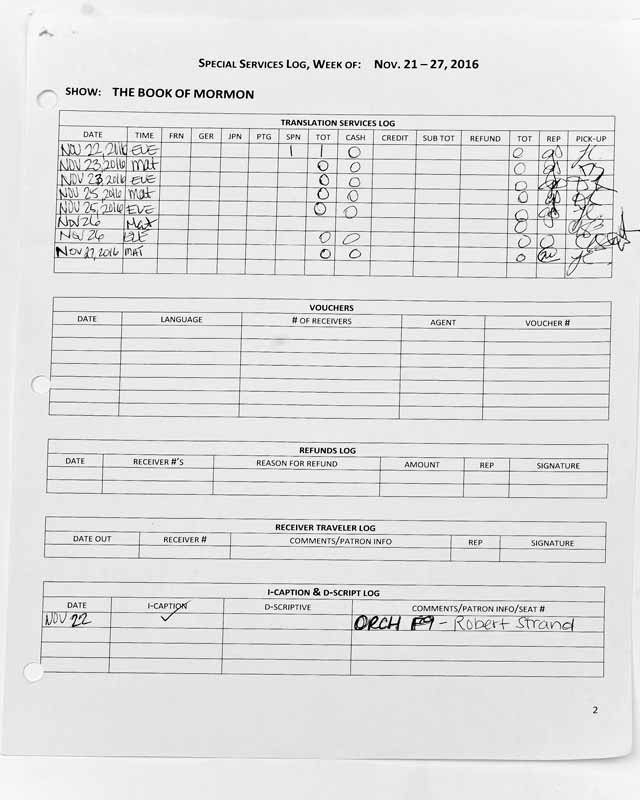 SPECIAL SERVICES LOG, WEEK OF: NOV. 21 – 27, 2016
SHOW: THE BOOK OF MORMON
TRANSLATION SERVICES LOG
DATE TIME FRN GER JPN PTG SPN TOT CASH CREDIT SUB TOT REFUND TOT REP PICK-UP
NOV 22, 2016 EVE 1 1 0 0
NOV 23, 2016 Mat 0 0 0
NOV 23, 2016 EVE 0 0 0
NOV 25, 2016 Mat 0 0 0
NOV 25, 2016 EVE 0 0 0
NOV 26 Mat 0
NOV 26 EVE 0 0 0
NOV 27, 2016 MAT 0 0 0
VOUCHERS
DATE LANGUAGE # OF RECEIVERS AGENT VOUCHER #
REFUNDS LOG
DATE RECEIVER #'S REASON FOR REFUND AMOUNT REP SIGNATURE
RECEIVER TRAVELER LOG
DATE OUT RECEIVER # COMMENTS/PATRON INFO REP SIGNATURE
I-CAPTION & D-SCRIPT LOG
DATE I-CAPTION D-SCRIPTIVE COMMENTS/PATRON INFO/SEAT #
NOV 22 ✓ ORCH F9 - Robert Strand
2